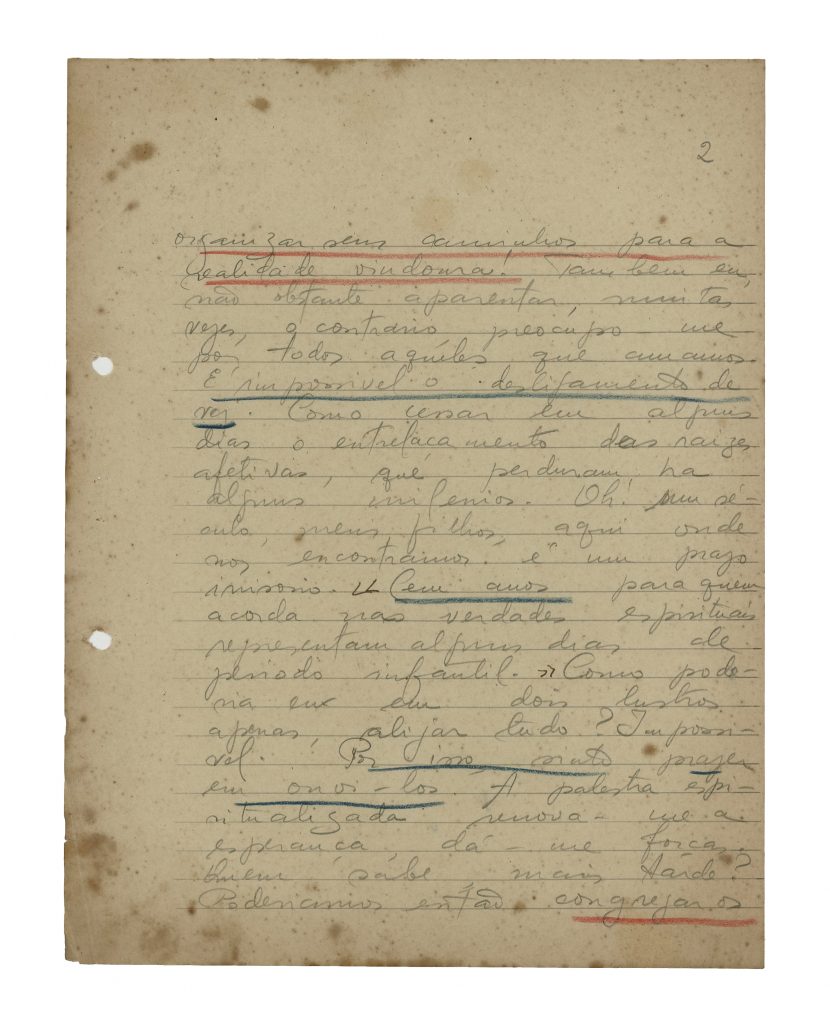 2
organizar seus caminhos para a
realidade vindoura. Tambem eu,
não obstante aparentar, muitas
vezes, o contrario preocupo-me
por todos aquéles que amamos.
É impossivel o desligamento de
vez. Como cessar em alguns
dias o entrelaçamento das raizes
afetivas, que perduram ha
alguns milenios. Oh! um sé-
culo, meus filhos, aqui onde
nos encontramos é um prazo
irrisorio. "Cem anos para quem
acorda nas verdades espirituais
representam alguns dias de
periodo infantil." Como pode-
ria eu em dois lustros
apenas, alijar tudo? Impossi-
vel. Por isso, sinto prazer
em ouvi-los. A palestra espi-
ritualizada renova-me a
esperança, dá-me forças.
Quem sabe, mais tarde?
Poderiamos então congregar os